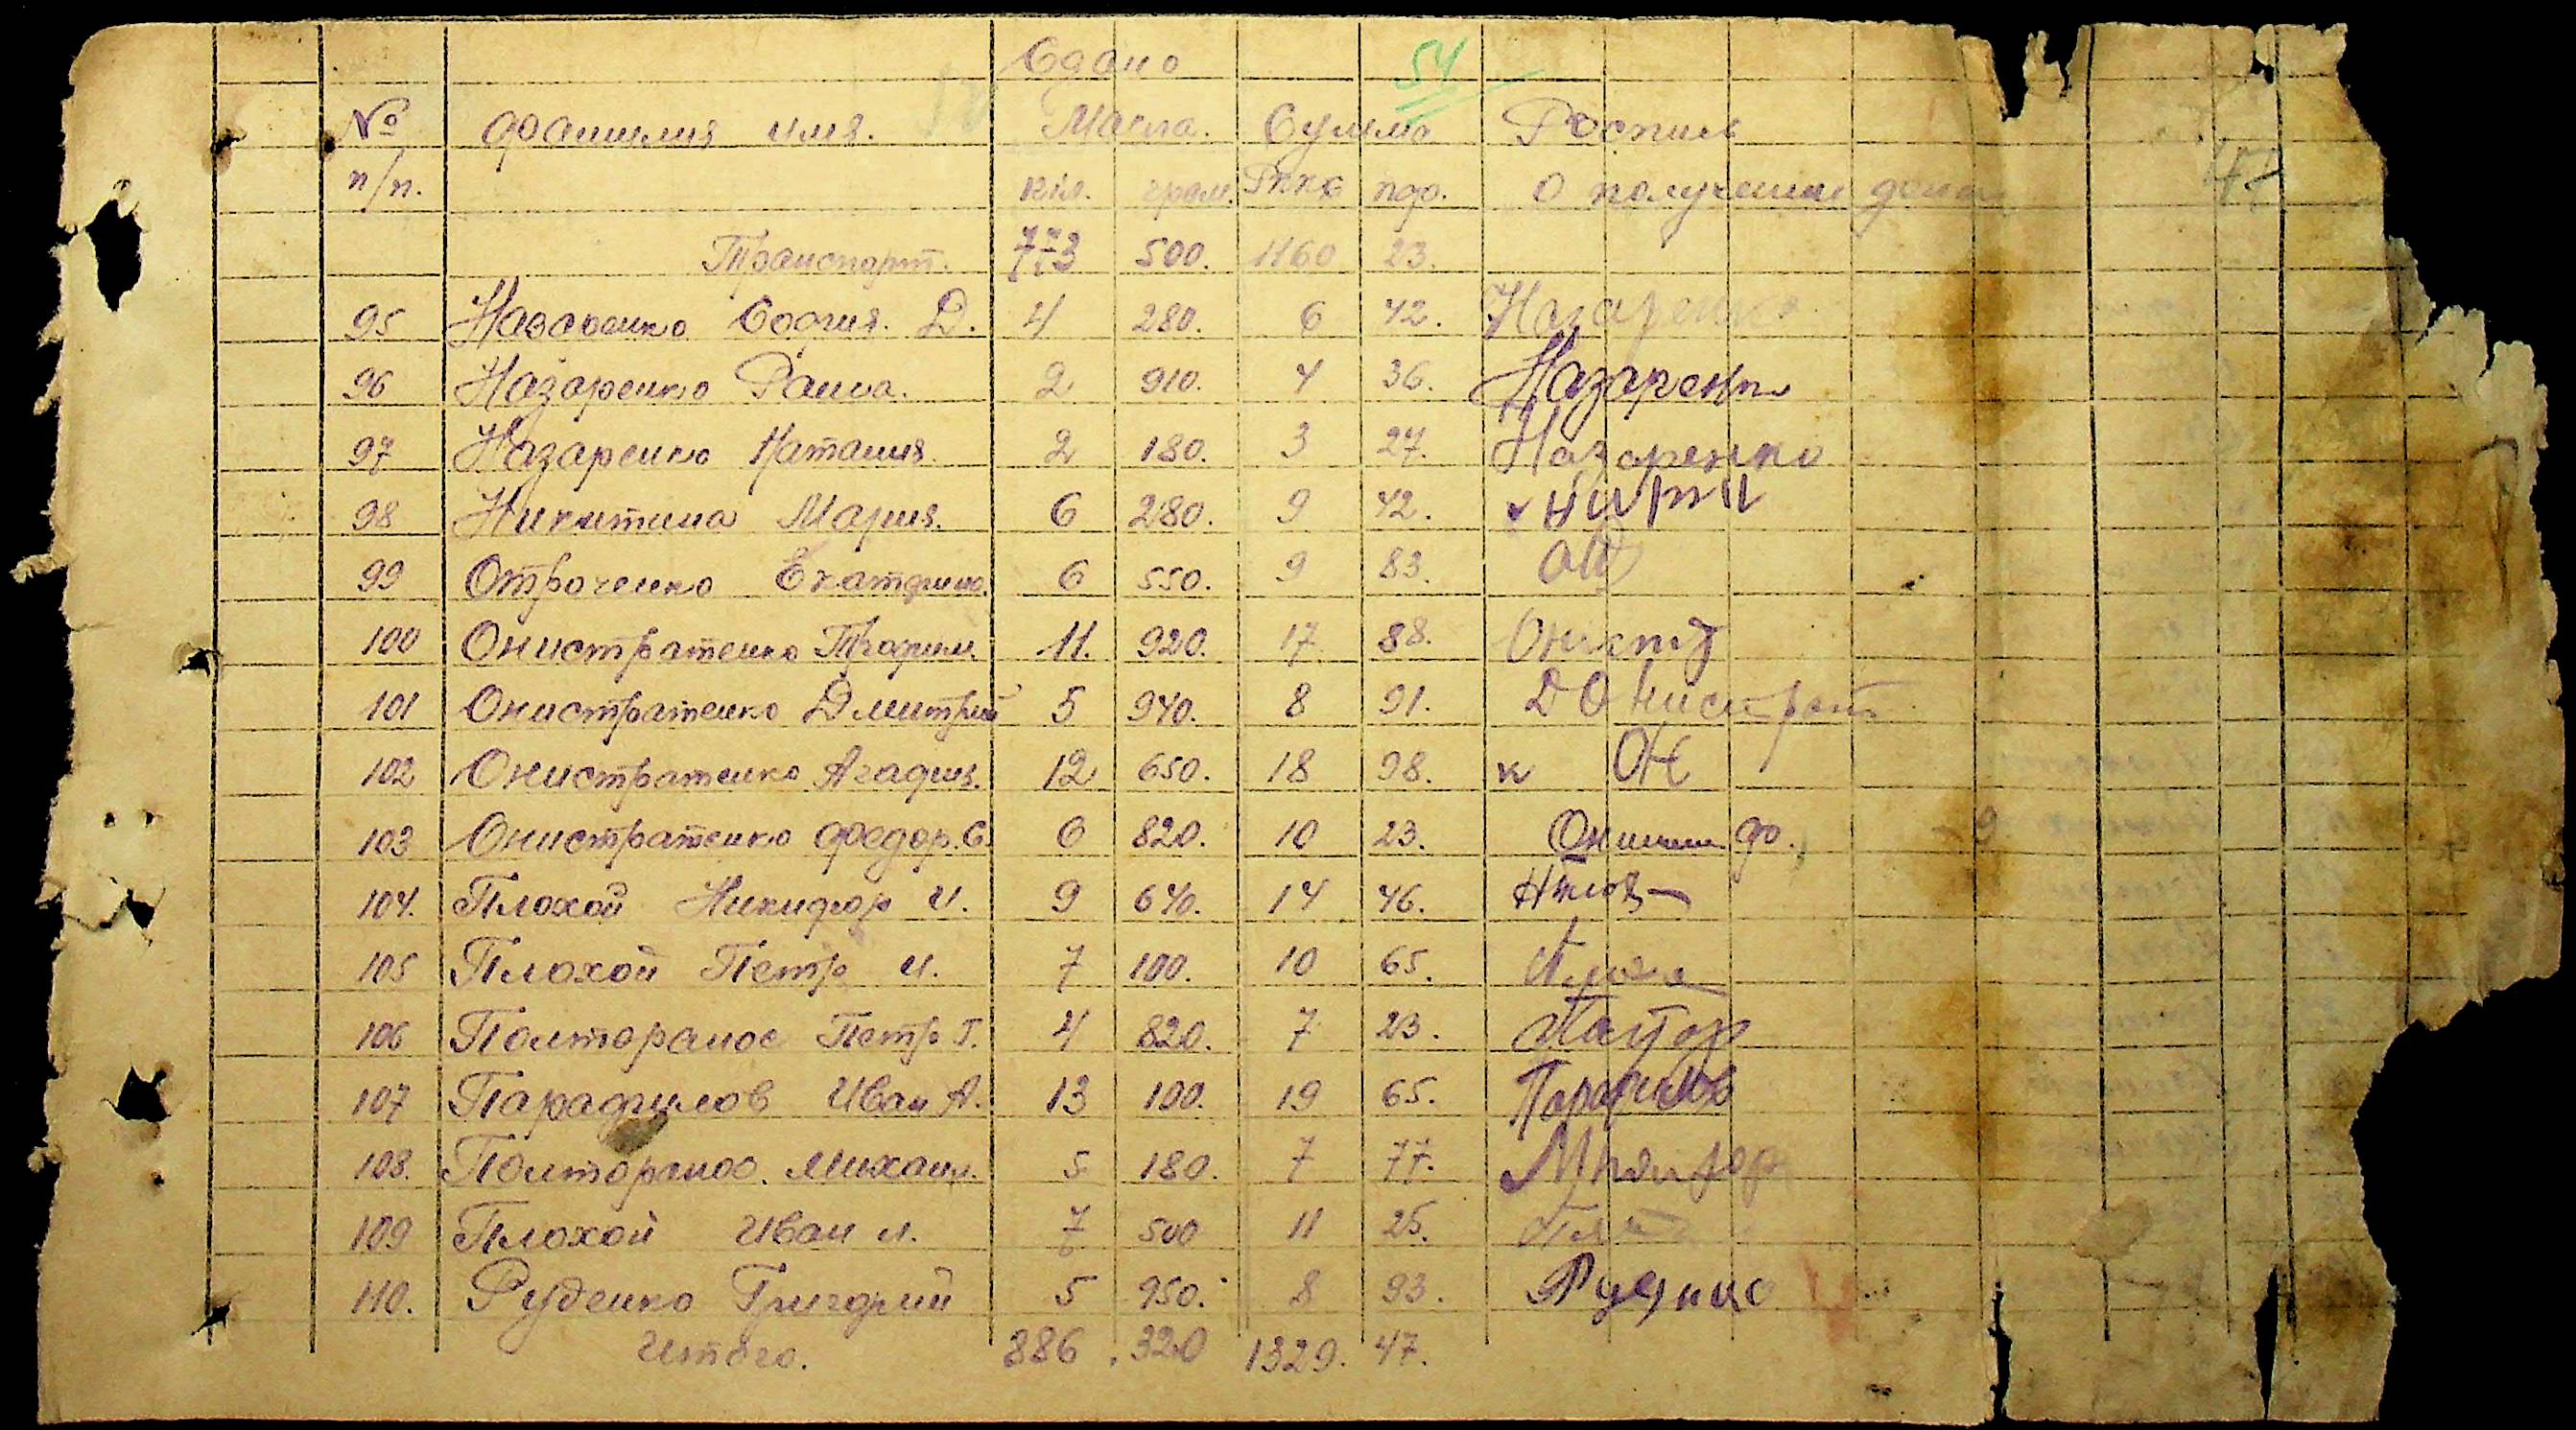 54
Сдано
№ Фамилия имя. Масла. Сумма Роспись
п/п. кил. грам. Рккс пф. о получении
Транспорт. 773 500. 1160 23.
95 София. Д. 4 280. 6 42. Назаренко
96 Назаренко Раиса. 2 910. 4 36. Назаренко
97 Назаренко Наталия. 2 180. 3 27. Назаренко
98 Никитина Мария. 6 280. 9 42.
99 Отроченко Екатерина. 6 550. 9 83.
100 Онистратенко Трофим. 11. 920. 17 88.
101 Онистратенко Дмитрий 5 940. 8 91. Д Онистрат
102 Онистратенко Агафия. 12 650. 18 98. к ОН
103 Онистратенко Федор. С. 6 820. 10 23.
104. Плохой Никифор И. 9 640. 14 46.
105 Плохой Петр И. 7 100. 10 65.
106 Полторанос Петр Г. 4 820. 7 23.
107 Парафилов Иван А. 13 100. 19 65. Парафилов
108. Полторанос. Михаил. 5 180. 7 77.
109 Плохой Иван И. 7 500 11 25.
110. Руденко Григорий 5 950. 8 93.
Итого. 886. 320 1329. 47.